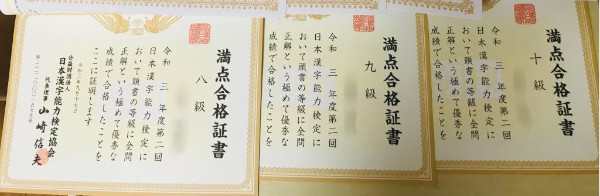 満点合格証書
十級
令和三年度第二回
日本漢字能力検定に
おいて頭書の等級に全問
正解という極めて優秀な
成績で合格したことを
満点合格証書
九級
令和三年度第二回
日本漢字能力検定に
おいて頭書の等級に全問
正解という極めて優秀な
成績で合格したことを
満点合格証書
八級
令和三年度第二回
日本漢字能力検定に
おいて頭書の等級に全問
正解という極めて優秀な
成績で合格したことを
ここに証明します
公益財団法人
日本漢字能力検定協会
代表理事 山崎信夫